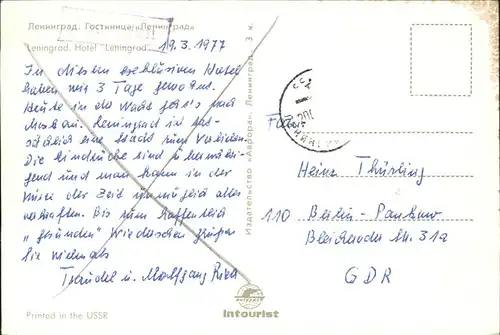 Ленинград. Гостиница «Ленинград»
Leningrad. Hotel "Leningrad"
19.3.1977
In diesem exklusiven Hotel
haben wir 3 Tage gewohnt.
Heute in der Nacht geht's nach
Moskau. Leningrad ist tat-
sächlich eine Stadt zum Verlieben.
Die Eindrücke sind überwälti-
gend und man kann in der
Kürze der Zeit unmöglich alles
verkraften. Bis zum hoffentlich
"gesunden" Wiedersehen grüßen
Sie vielmals
Traudel u. Wolfgang
Издательство «Аврора». Ленинград. 3 к.
Heinz Thürling
110 Berlin-Pankow
Str. 31a
GDR
Printed in the USSR
Intourist